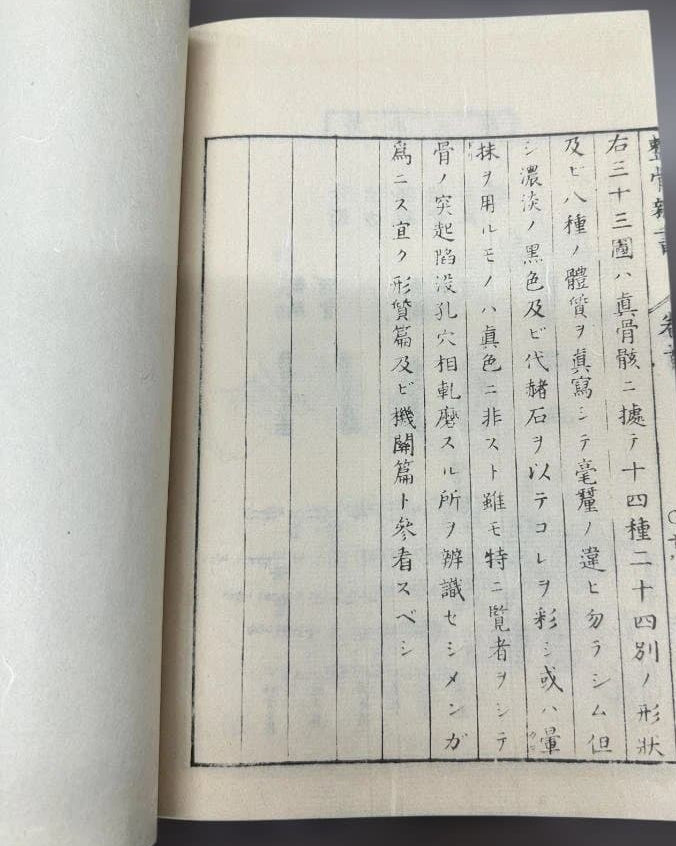 整骨新書 卷首
右三十三圖ハ眞骨骸ニ據テ十四種二十四別ノ形狀
及ビ八種ノ體質ヲ眞寫シテ毫釐ノ違ヒ勿ラシム但
シ濃淡ノ黑色及ビ代赭石ヲ以テコレヲ彩シ或ハ暈
抹ヲ用ルモノハ眞色ニ非スト雖モ特ニ覧者ヲシテ
骨ノ突起陷没孔穴相軋磨スル所ヲ辨識セシメンガ
爲ニス宜ク形質篇及ビ機關篇ト參看スベシ